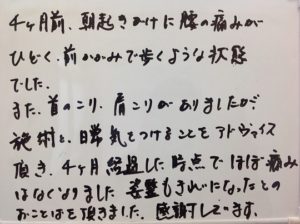 4ヶ月前、朝起きがけに腰の痛みが
ひどく、前かがみで歩くような状態
でした。
また、首のこり、肩こりがありましたが
施術と、日常気をつけることをアドヴァイス
頂き、4ヶ月経過した時点でほぼ痛み
はなくなりました 姿勢もきれいになったとの
おことばを頂きました。感謝しています。